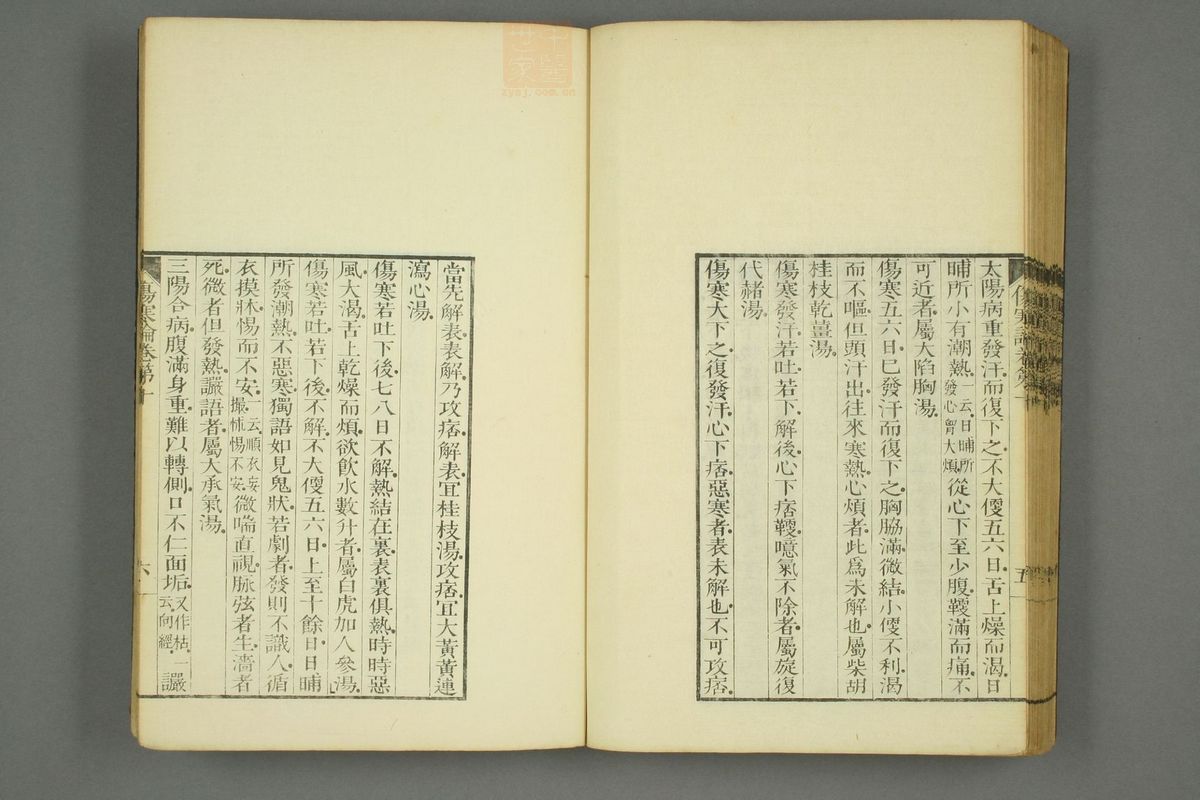 太陽病重發汗而復下之不大便五六日舌上燥而渴日
晡所小有潮熱一云日晡所發心胷大煩從心下至少腹鞕滿而痛不
可近者屬大陷胸湯
傷寒五六日巳發汗而復下之胸脇滿微結小便不利渴
而不嘔但頭汗出往來寒熱心煩者此爲未解也屬柴胡
桂枝乾薑湯
傷寒發汗若吐若下解後心下痞鞕噫氣不除者屬旋復
代赭湯
傷寒大下之復發汗心下痞惡寒者表未解也不可攻痞
五
當先解表表解乃攻痞解表宜桂枝湯攻痞宜大黃黃連
瀉心湯
傷寒若吐下後七八日不解熱結在裏表裏俱熱時時惡
風大渴舌上乾燥而煩欲飲水數升者屬白虎加人參湯
傷寒若吐若下後不解不大便五六日上至十餘日日晡
所發潮熱不惡寒獨語如見鬼狀若劇者發則不識人循
衣摸牀惕而不安一云順衣妄撮怵惕不安微喘直視脉弦者生濇者
死微者但發熱讝語者屬大承氣湯
三陽合病腹滿身重難以轉側口不仁面垢又作枯一云向經讝
傷寒論卷第十
六
中醫世家
zysj.com.cn